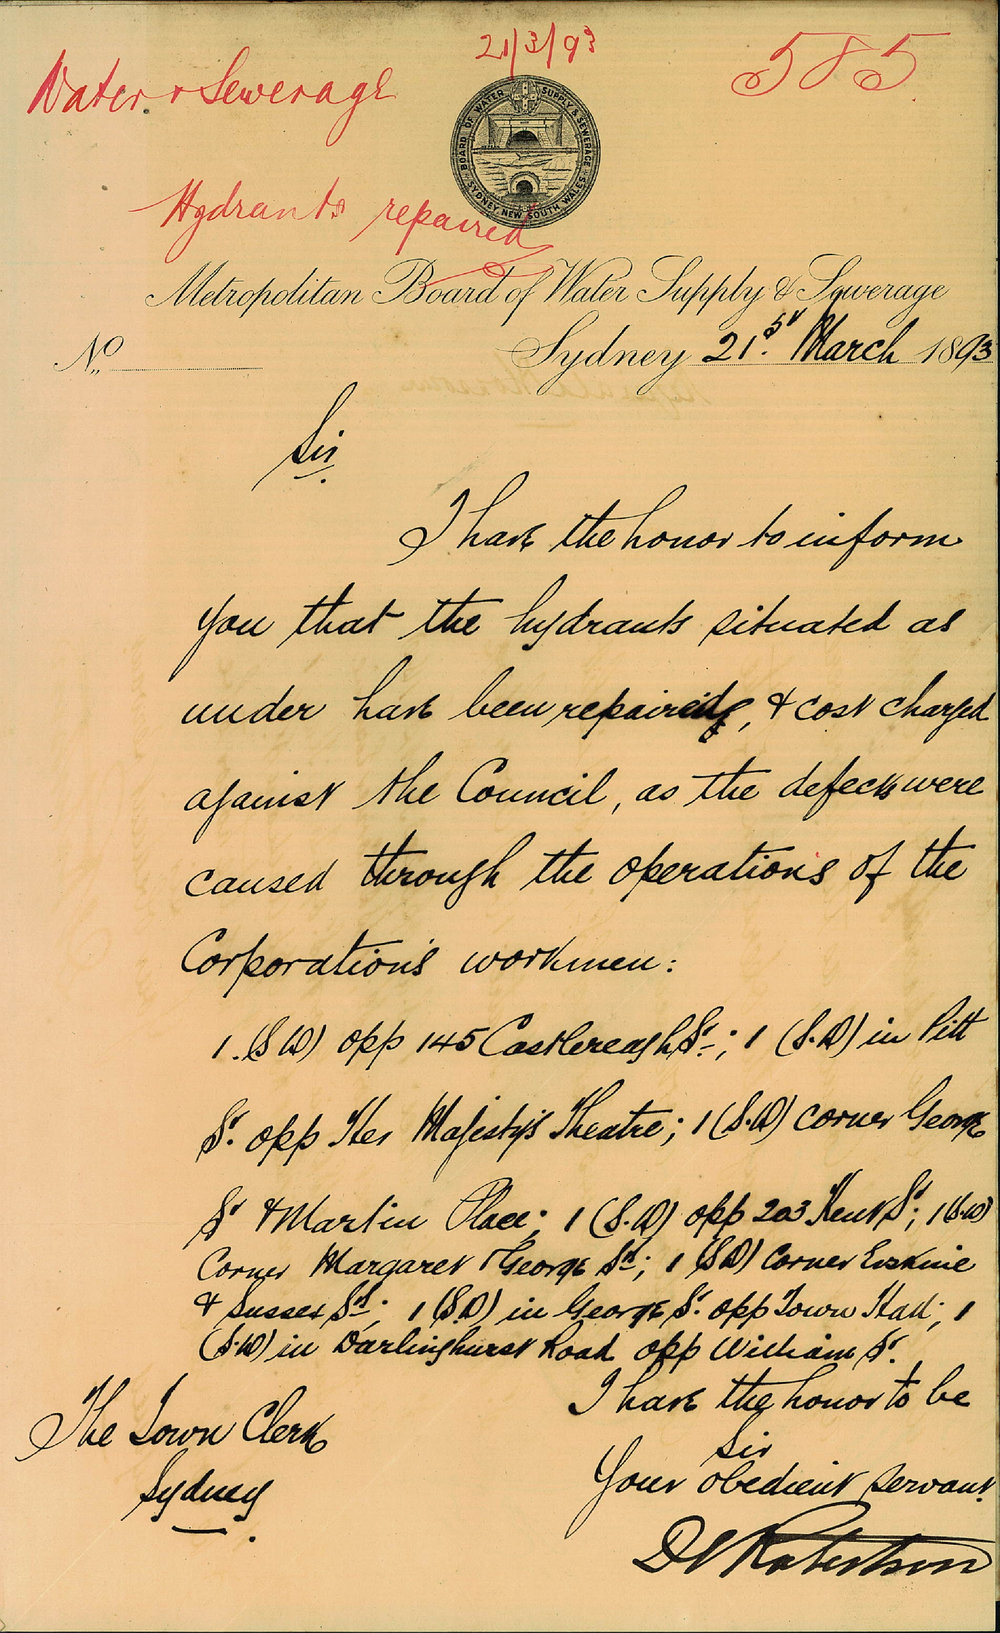 21/3/93
585
Water & Sewerage
BOARD OF WATER SUPPLY & SEWERAGE
SYDNEY NEW SOUTH WALES
Hydrants repaired
Metropolitan Board of Water Supply & Sewerage
No. Sydney 21st. March 1893
Sir
I have the honor to inform
you that the hydrants situated as
under have been repaired, & cost charged
against the Council, as the defects were
caused through the operations of the
Corporation's workmen:
1. (S.D) opp 145 Castlereagh St.; 1 (S.D) in Pitt
St. opp Her Majesty's Theatre; 1 (S.D) corner George
St & Martin Place; 1 (S.D) opp 203 Kent St; 1 (S.D)
Corner Margaret & George Sts; 1 (S.D) Corner Erskine
& Sussex Sts; 1 (S.D) in George St. opp Town Hall; 1
(S.D) in Darlinghurst Road opp William St.
I have the honor to be
Sir
Your obedient servant
The Town Clerk
Sydney.
Robertson